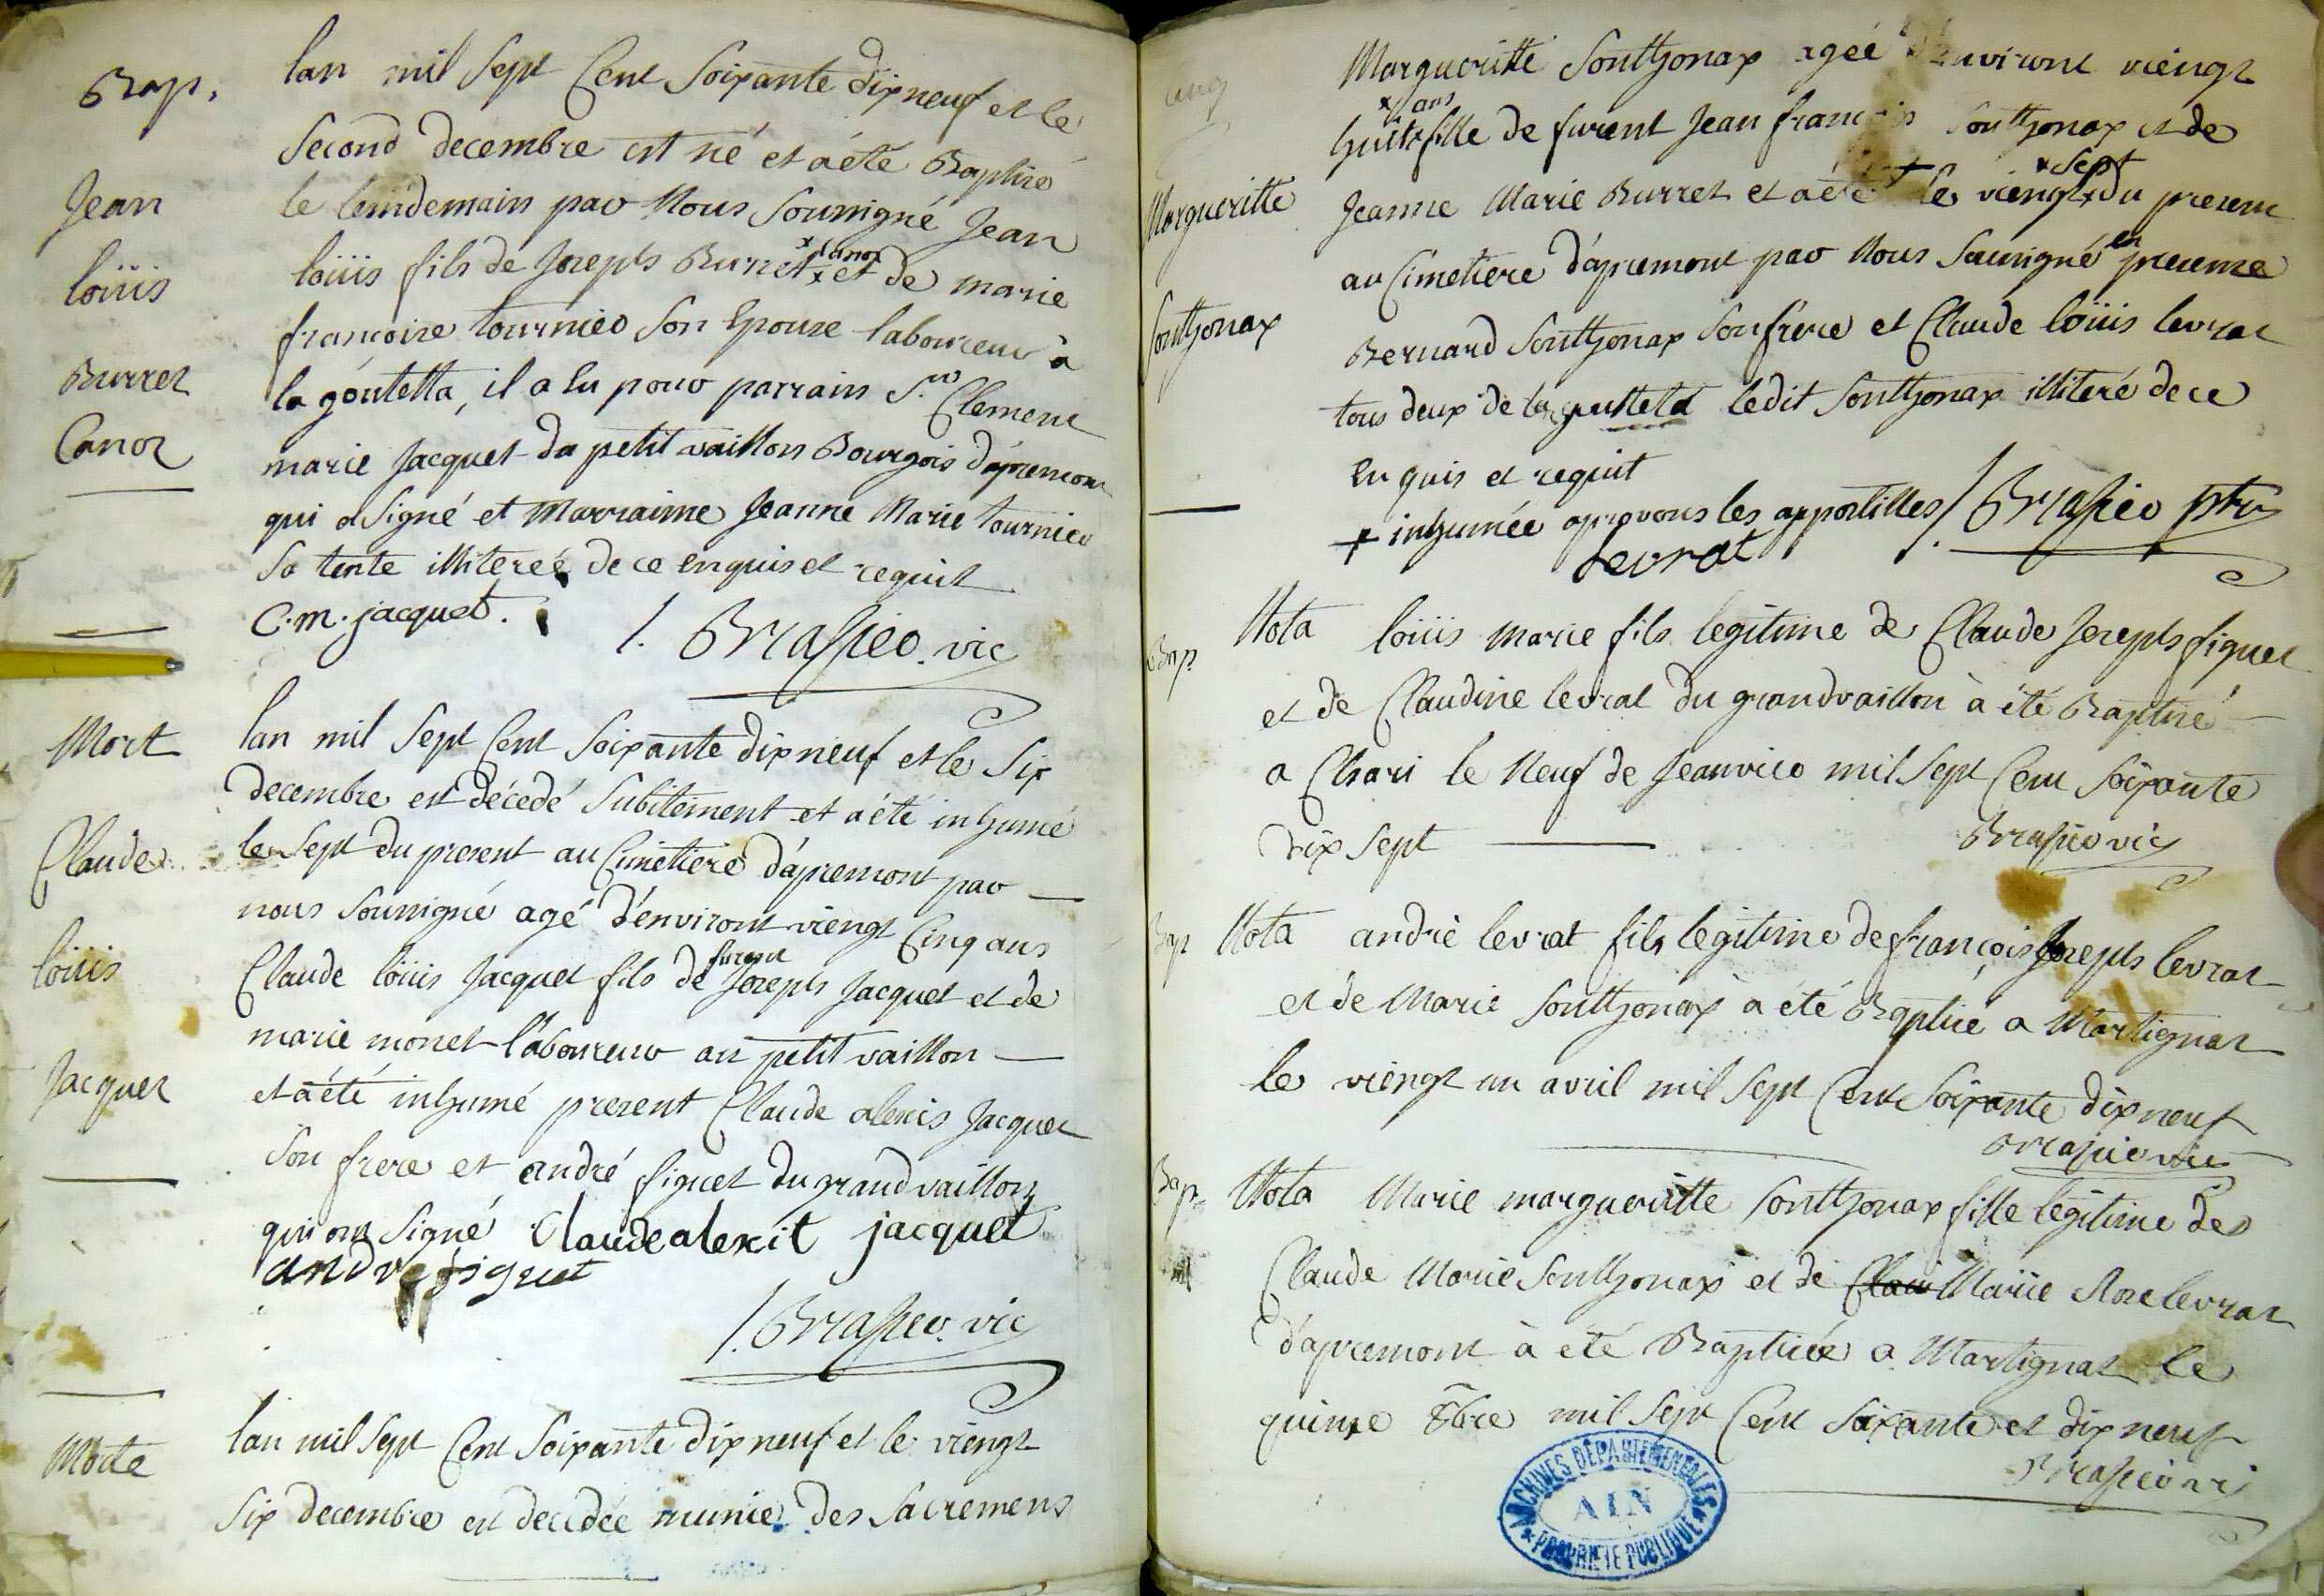 Bap.
Jean
loüis
Burret
Canoz
lan mil Sept Cent Soixante dix neuf et le
Second decembre est né et a été Baptisé
le lendemain par Nous Soussigné Jean
loüis fils de Joseph Burret x et de marie
x Canoz
françoise tournier Son Epouse laboureur à
la goutetta, il a Eu pour parrain Sr. Clement
marie Jacquet du petit vaillon Bourgois d'apremont
qui a Signé et Marraine Jeanne Marie tournier
Sa tente illiterée de ce enquise et requise
C.m. jacquet.
/. Brasier. vic
Mort
Claude
loüis
Jacquet
lan mil Sept Cent Soixante dix neuf et le Six
decembre est décedé Subitement et a été inhumé
le Sept du present au Cimetiere d'apremont par
nous Soussigné agé d'environt viengt Cinq ans
Claude loüis Jacquet fils de furent Joseph Jacquet et de
marie monet laboureur au petit vaillon
et a été inhumé present Claude alexis Jacquet
Son frere et andré figuet du grand vaillon
qui ont Signé Claude alexit jacquet
andre figuet
/. Brasier. vic
Morte
lan mil Sept Cent Soixante dix neuf et le viengt
Six decembre est decedée munie des Sacremens
Margueritte
Sonthonax
Margueritte Sonthonax agée d'environt viengt
huit x fille de furent Jean françois Sonthonax et de
x ans
Jeanne Marie Burret et a été + le viengt x du present
x Sept
au Cimetiere d'apremont par Nous Soussigné en presence
Bernard Sonthonax Son frere et Claude loüis levrat
tous deux de la gutteta ledit Sonthonax illiteré de ce
Enquis et requit
+ inhumée aprovons les appostilles /. Brasier ptre
Levrat
Bap
Nota loüis marie fils legitime de Claude Joseph figuet
et de Claudine levrat du grandvaillon à été Baptisé
a Chari le Neuf de Jeanvier mil Sept Cent Soixante
dix Sept Brasier vic
Bap
Nota andré levrat fils legitime de françois Joseph levrat
et de Marie Sonthonax à été Baptisé a Martignat
le viengt un avril mil Sept Cent Soixante dix neuf
Brasier vic
Bap
Nota Marie margueritte Sonthonax fille legitime de
Claude Marie Sonthonax et de Marie Rose levrat
d'apremont à été Baptisée a Martignat le
quinze 8bre mil Sept Cent Soixante et dix neuf
Brasier vi
ARCHIVES DÉPARTEMENTALES
AIN
PROPRIÉTÉ PUBLIQUE